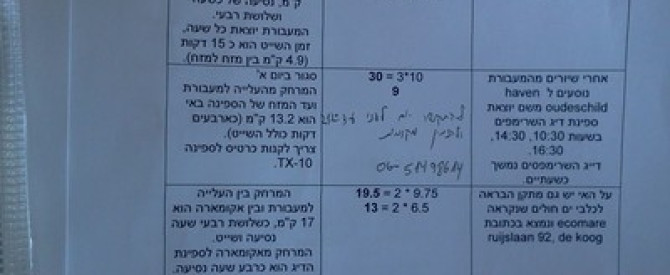 ק"מ, נסיעה של כשעה
ושלושת רבעי.
המעבורת יוצאת כל שעה,
זמן השייט הוא כ 15 דקות
(4.9 ק"מ בין מזח למזח).
אחרי שיורדים מהמעבורת
נוסעים ל haven
oudeschild משם יוצאת
ספינת דיג השרימפס
בשעות 10:30, 14:30,
16:30.
דייג השרימפסים נמשך
כשעתיים.
30 = 3*10
9
להתקשר יום לפני
ולהזמין מקומות
06-51498614
סגור ביום א'
המרחק מהעלייה למעבורת
ועד המזח של הספינה באי
הוא 13.2 ק"מ (כארבעים
דקות כולל השייט).
צריך לקנות כרטיס לספינה
TX-10.
על האי יש גם מתקן הבראה
לכלבי ים חולים שנקראה
ecomare ונמצא בכתובת
ruijslaan 92, de koog
19.5 = 2 * 9.75
13 = 2 * 6.5
המרחק בין העלייה
למעבורת ובין אקומארה הוא
17 ק"מ, כשלושת רבעי שעה
נסיעה ושייט.
המרחק מאקומארה לספינת
הדיג הוא כרבע שעה נסיעה.